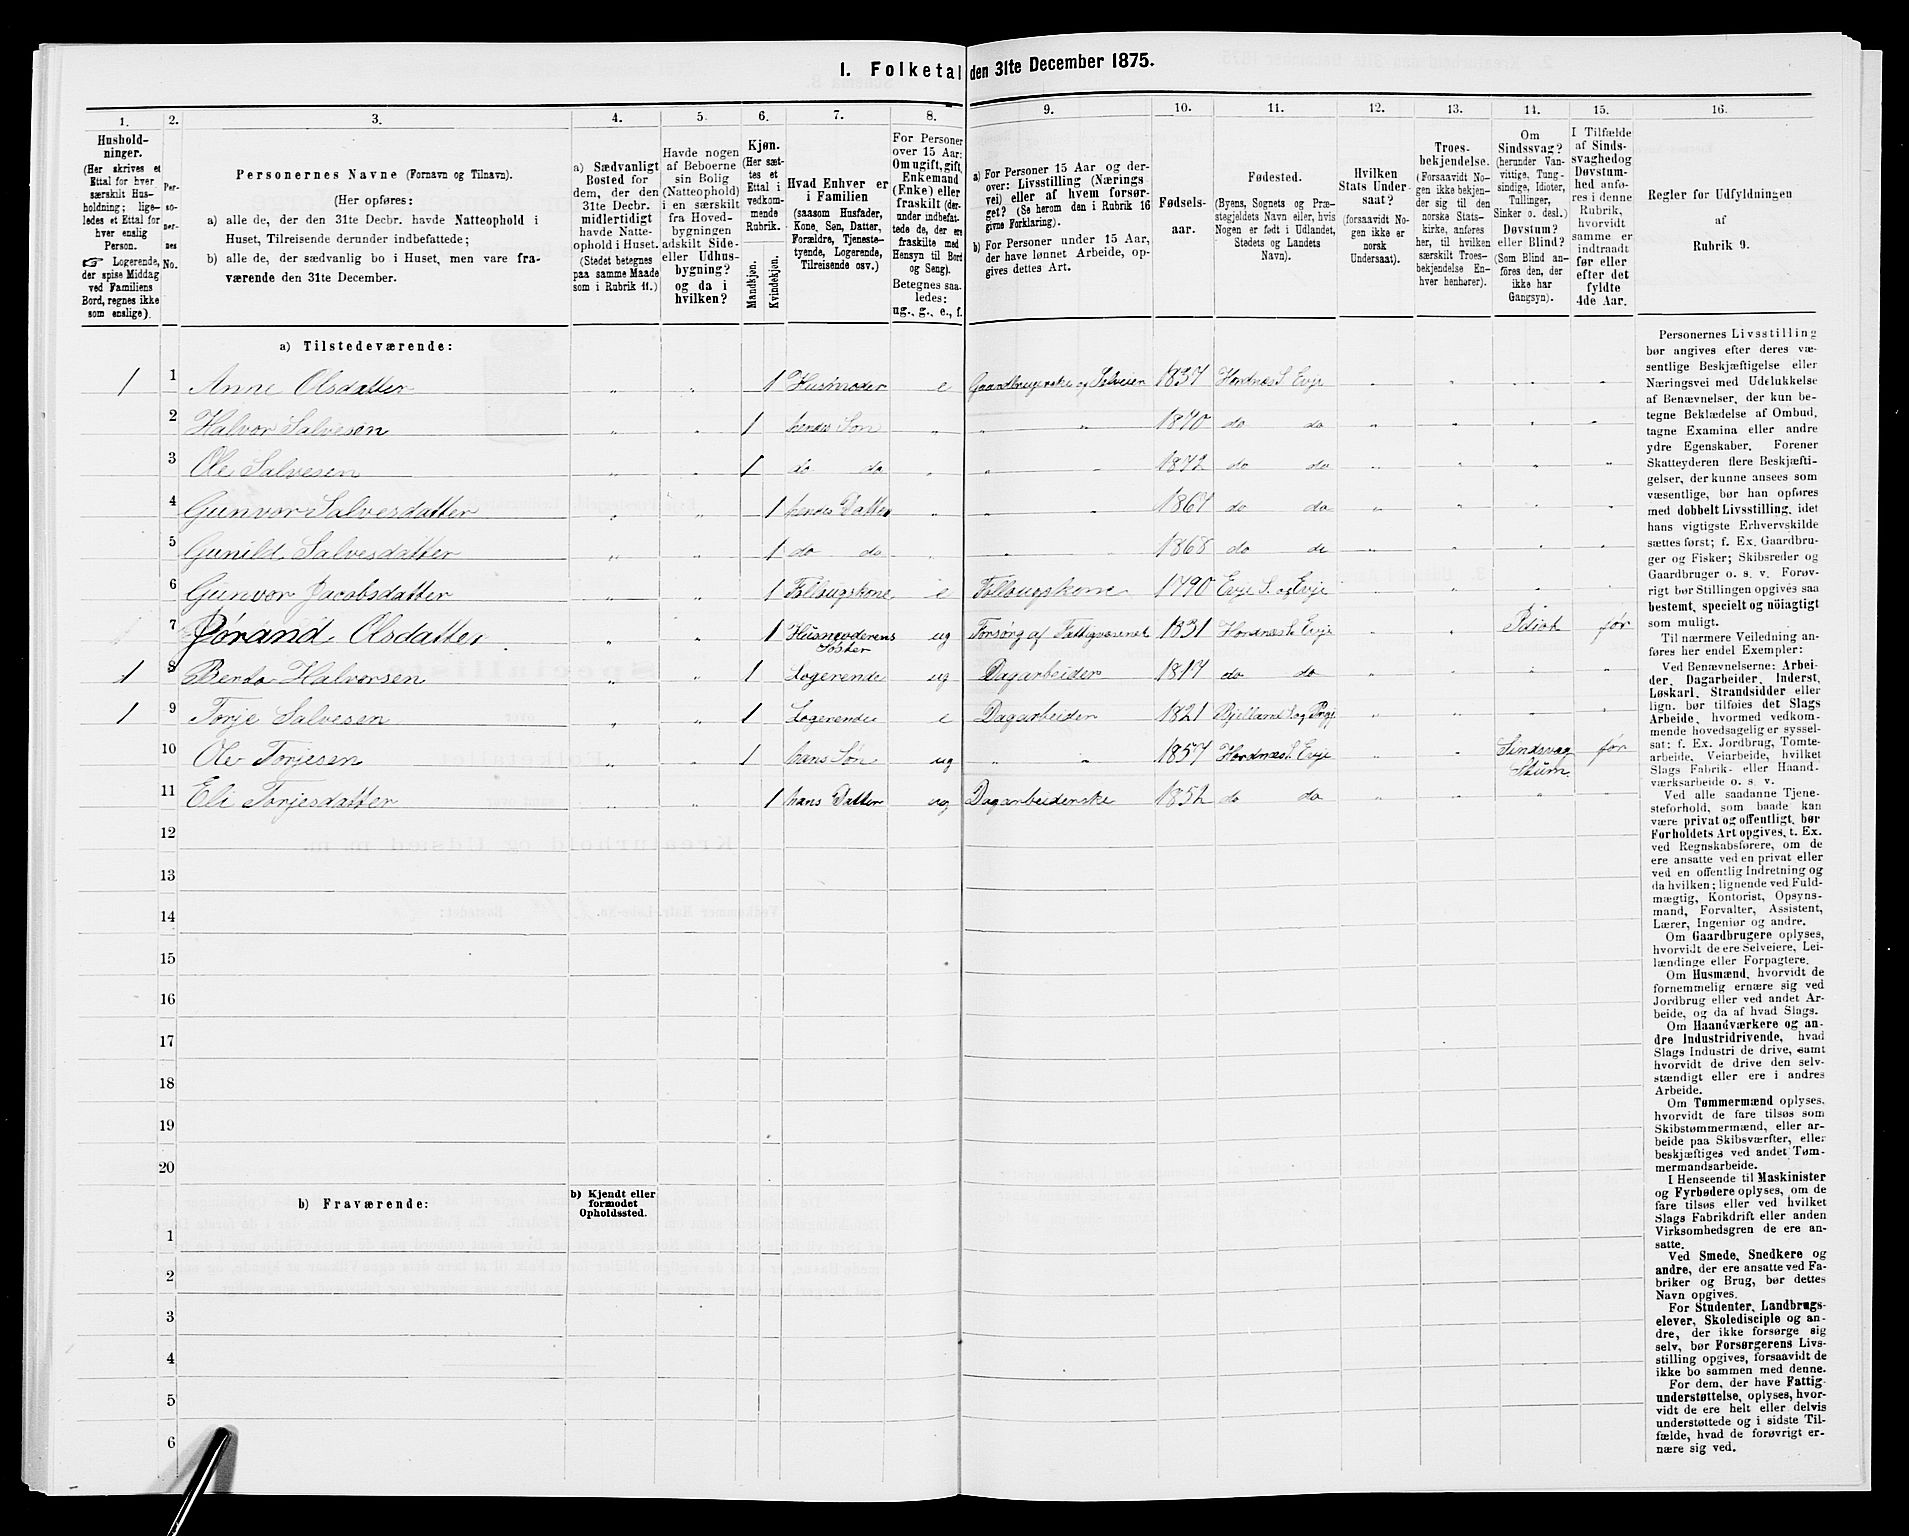 I. Folketal den 31te December 1875.
1. 2. 3. 4. 5. 6. 7. 8. 9. 10. 11. 12. 13. 14. 15. 16.
Hushold-
ninger.
(Her skrives et
Ettal for hver
særskilt Hus-
holdning; lige-
ledes et Ettal for
hver enslig
Person.
☞ Logerende,
der spise Middag
ved Familiens
Bord, regnes ikke
som enslige).
Per-
so-
ner-
nes
No.
Personernes Navne (Fornavn og Tilnavn).
(Her opføres:
a) alle de, der den 31te Decbr. havde Natteophold i
Huset, Tilreisende derunder indbefattede;
b) alle de, der sædvanlig bo i Huset, men vare fra-
værende den 31te December.
a) Sædvanligt
Bosted for
dem, der den
31te Decbr.
midlertidigt
havde Natte-
ophold i Huset.
(Stedet betegnes
paa samme Maade
som i Rubrik 11.)
Havde nogen
af Beboerne
sin Bolig
(Natteophold)
i en særskilt
fra Hoved-
bygningen
adskilt Side-
eller Udhus-
bygning?
og da i
hvilken?
Kjøn.
(Her sæt-
tes et
Ettal i
vedkom-
mende
Rubrik.
Mandkjøn.
Kvindekjøn.
Hvad Enhver er
i Familien
(saasom Husfader,
Kone, Søn, Datter,
Forældre, Tjeneste-
tyende, Logerende,
Tilreisende osv.)
For Personer
over 15 Aar:
Om ugift, gift,
Enkemand
(Enke) eller
fraskilt (der-
under indbefat-
tede de, der ere
fraskilte med
Hensyn til Bord
og Seng).
Betegnes saa-
ledes:
ug., g., e., f.
a) For Personer 15 Aar og der-
over: Livsstilling (Nærings-
vei) eller af hvem forsør-
get? (Se herom den i Rubrik 16
givne Forklaring).
b) For Personer under 15 Aar,
der have lønnet Arbeide, op-
gives dettes Art.
Fødsels-
aar.
Fødested.
(Byens, Sognets og Præ-
stegjeldets Navn eller, hvis
Nogen er født i Udlandet,
Stedets og Landets
Navn).
Hvilken
Stats Under-
saat?
(forsaavidt No-
gen ikke er
norsk
Undersaat).
Troes-
bekjendelse.
(Forsaavidt No-
gen ikke bekjen-
der sig til den
norske Stats-
kirke, anføres
her, til hvilken
særskilt Troes-
bekjendelse En-
hver henhører).
Om
Sindssvag?
(herunder Van-
vittige, Tung-
sindige, Idioter,
Tullinger,
Sinker o. desl.)
Døvstum?
eller Blind?
(Som Blind an-
føres den, der
ikke har
Gangsyn).
I Tilfælde
af Sinds-
svaghed og
Døvstum-
hed anfø-
res i denne
Rubrik,
hvorvidt
samme er
indtraadt
før eller
efter det
fyldte
4de Aar.
Regler for Udfyldningen
af
Rubrik 9.
a) Tilstedeværende:
1 1 Anne Olsdatter " " 1 Husmoder e Gaardbrugerske og Selveier 1837 Hordnæs S. Evje " " " "
2 Halvor Salvesøn " " 1 hendes Søn " " " 1870 do do " " " "
3 Ole Salvesen " " 1 do do " " " 1872 do do " " " "
4 Gunvor Salvesdatter " " 1 hendes Datter " " " 1867 do do " " " "
5 Gunild Salvesdatter " " 1 do do " " " 1868 do do " " " "
6 Gunvor Jacobsdatter " " 1 Follaugskone e Follaugskone 1790 Evje S. og Evje " " " "
7 Jørand Olsdatter " " 1 Husmoderens Søster ug Forsørg af Fattigvæsenet 1831 Hordnæs S. Evje " " Idiot før
1 8 Berdo Halvorsen " " 1 Logerende ug Dagarbeider 1817 do do " " " "
1 9 Torje Salvesen " " 1 Logerende e Dagarbeider 1821 Bjelland S og Prgj. " " " "
10 Ole Torjesen " " 1 hans Søn ug " " 1857 Hordnæs S. Evje " " Sindsvag Stum før
11 Eli Torjesdatter " " 1 hans Datter ug Dagarbeiderske 1852 do do " " " "
12
13
14
15
16
17
18
19
20
b) Fraværende:
b) Kjendt eller
formodet
Opholdssted.
1
2
3
4
5
6
Personernes Livsstilling
bør angives efter deres væ-
sentlige Beskjæftigelse eller
Næringsvei med Udelukkelse
af Benævnelser, der kun be-
tegne Beklædelse af Ombud,
tagne Examina eller andre
ydre Egenskaber. Forener
Skatteyderen flere Beskjæfti-
gelser, der kunne ansees som
væsentlige, bør han opføres
med dobbelt Livsstilling, idet
hans vigtigste Erhvervskilde
sættes først; f. Ex. Gaardbru-
ger og Fisker; Skibsreder og
Gaardbruger o. s. v. Forøv-
rigt bør Stillingen opgives saa
bestemt, specielt og nöiagtigt
som muligt.
Til nærmere Veiledning an-
føres her endel Exempler:
Ved Benævnelserne: Arbei-
der, Dagarbeider, Inderst,
Løskarl, Strandsidder eller
lign. bør tilføies det Slags
Arbeide, hvormed vedkom-
mende hovedsagelig er syssel-
sat; f. Ex. Jordbrug, Tomte-
arbeide, Veiarbeide, hvilket
Slags Fabrik- eller Haand-
værksarbeide o. s. v.
Ved alle saadanne Tjene-
steforhold, som baade kan
være privat og offentligt, bør
Forholdets Art opgives, t. Ex.
ved Regnskabsførere, om de
ere ansatte ved en privat eller
ved en offentlig Indretning og
da hvilken; lignende ved Fuld-
mægtig, Kontorist, Opsyns-
mand, Forvalter, Assistent,
Lærer, Ingeniør og andre.
Om Gaardbrugere oplyses,
hvorvidt de ere Selveiere, Lei-
lændinge eller Forpagtere.
Om Husmænd, hvorvidt de
fornemmelig ernære sig ved
Jordbrug eller ved andet Ar-
beide, og da af hvad Slags.
Om Haandværkere og an-
dre Industridrivende, hvad
Slags Industri de drive, samt
hvorvidt de drive den selv-
stændigt eller ere i andres
Arbeide.
Om Tømmermænd oplyses,
hvorvidt de fare tilsøs som
Skibstømmermænd, eller ar-
beide paa Skibsværfter, eller
beskjæftiges ved andet Tøm-
mermandsarbeide.
I Henseende til Maskinister
og Fyrbødere oplyses, om de
fare tilsøs eller ved hvilket
Slags Fabrikdrift eller anden
Virksomhedsgren de ere an-
satte.
Ved Smede, Snedkere og
andre, der ere ansatte ved Fa-
briker og Brug, bør dettes
Navn opgives.
For Studenter, Landbrugs-
elever, Skoledisciple og an-
dre, der ikke forsørge sig
selv, bør Forsørgerens Livs-
stilling opgives, forsaavidt de
ikke bo sammen med denne.
For dem, der have Fattig-
understøttelse, oplyses, hvor-
vidt de ere helt eller delvis
understøttede og i sidste Til-
fælde, hvad de forøvrigt er-
nære sig ved.